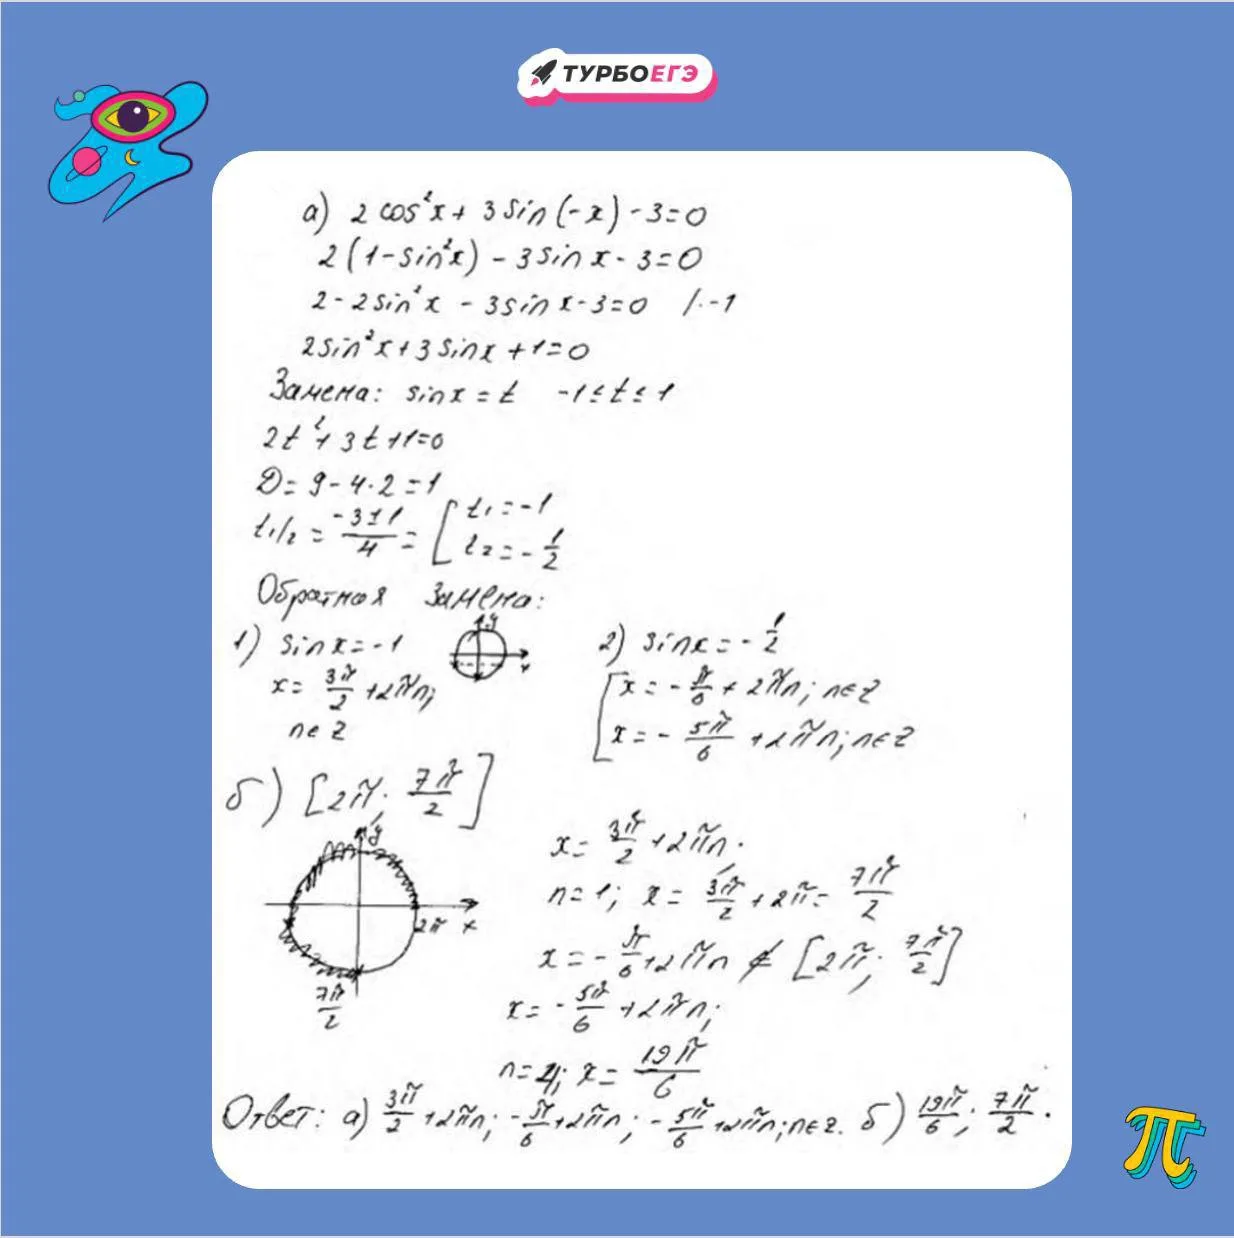 ТУРБОЕГЭ
а) 2 cos²x + 3 sin(-x) - 3 = 0
2(1 - sin²x) - 3 sin x - 3 = 0
2 - 2 sin²x - 3 sin x - 3 = 0 /· -1
2 sin²x + 3 sin x + 1 = 0
Замена: sin x = t -1 ≤ t ≤ 1
2t² + 3t + 1 = 0
D = 9 - 4·2 = 1
t₁/₂ = (-3±1)/4 = [ t₁ = -1
t₂ = -1/2
Обратная замена:
1) sin x = -1
x = 3π/2 + 2πn;
n∈Z
y
x
2) sin x = -1/2
[ x = -π/6 + 2πn; n∈Z
x = -5π/6 + 2πn; n∈Z
б) [2π; 7π/2]
y
x
2π
7π/2
x = 3π/2 + 2πn;
n = 1; x = 3π/2 + 2π = 7π/2
x = -π/6 + 2πn ∉ [2π; 7π/2]
x = -5π/6 + 2πn;
x = 19π/6
Ответ: а) 3π/2 + 2πn; -π/6 + 2πn; -5π/6 + 2πn; n∈Z. б) 19π/6; 7π/2.
π